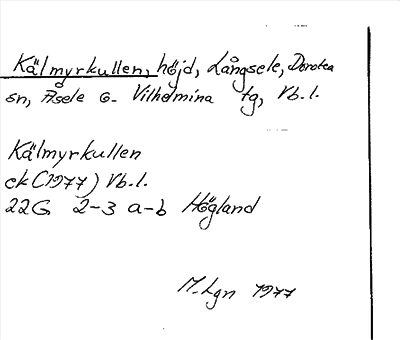 Kälmyrkullen, höjd, Långsele, Dorotea
sn, Åsele o. Vilhelmina tg, Vb.l.
Kälmyrkullen
ek (1977) Vb.l.
22G 2-3 a-b Högland
M. Lgn 1977